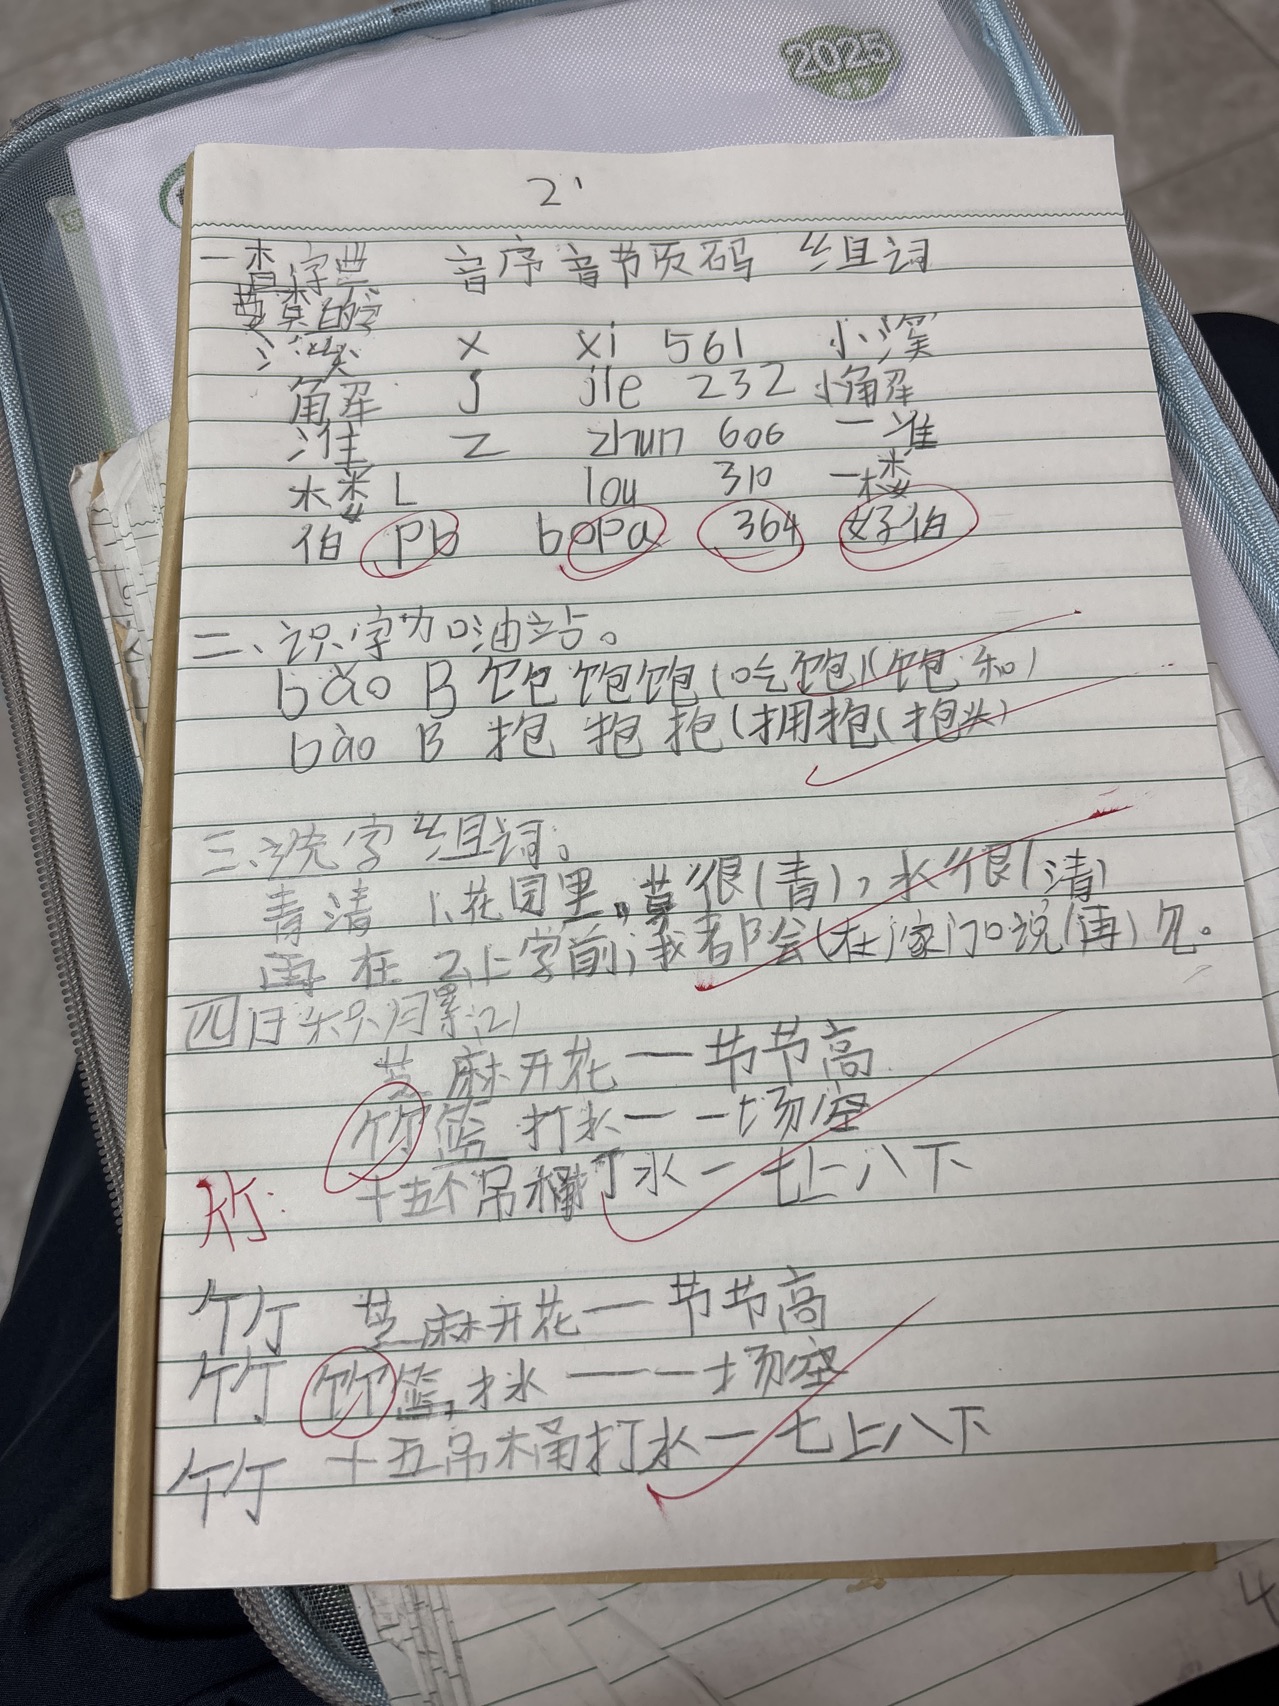 2025
2'
一查字典 音序音节页码 组词
要查的字
溪 x xi 561 小溪
角解 J jie 232 小角解
准 Z zhun 606 一准
楼 L lou 310 一楼
伯 pb bopa 364 好伯
二、识字加油站。
bǎo B 饱饱饱(吃饱)(饱和)
bào B 抱抱抱(拥抱(抱头)
三、选字组词。
青清 1、花园里,草很(青),水很(清)
再在 2、上学前,我都会(在)家门口说(再)见。
四日积月累(2)
芝麻开花一节节高
竹篮打水一一场空
十五个吊桶打水一七上八下
竹
竹 芝麻开花一节节高
竹 竹篮,打水一一一场空
竹 十五吊桶打水一七上八下
4